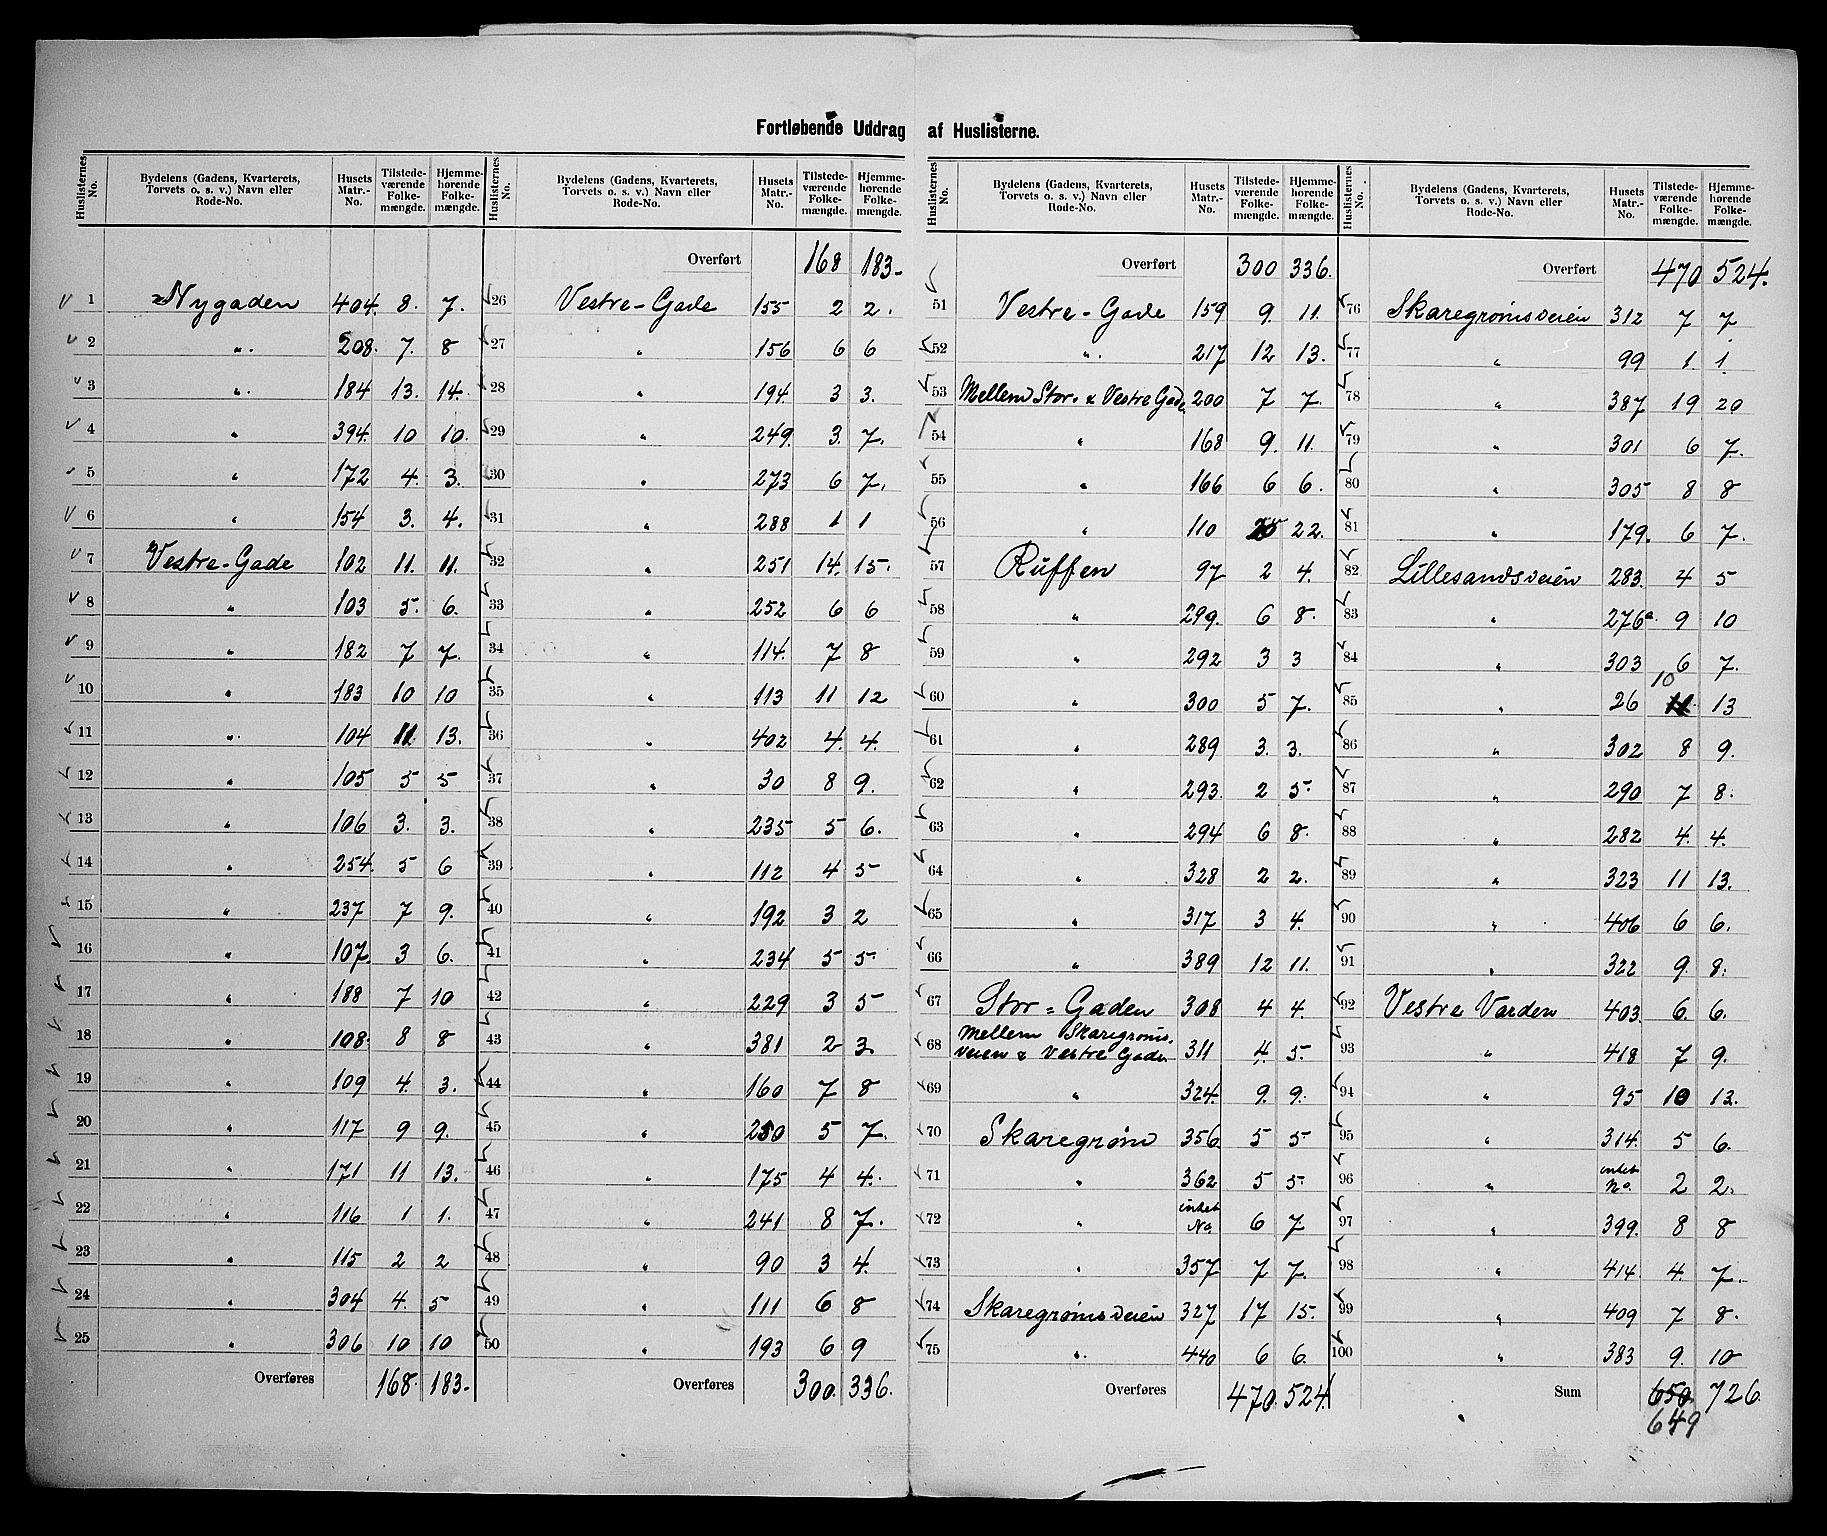 Fortløbende Uddrag af Huslisterne.
Huslisternes No. | Bydelens (Gadens, Kvarterets, Torvets o. s. v.) Navn eller Rode-No. | Husets Matr.-No. | Tilstedeværende Folkemængde. | Hjemmehørende Folkemængde.
1 Nygaden 404. 8. 7.
2 „ 208. 7. 8
3 „ 184 13. 14.
4 „ 394. 10 10.
5 „ 172 4. 3.
6 „ 154 3. 4.
7 Vestre-Gade 102 11. 11.
8 „ 103 5. 6.
9 „ 182 7 7.
10 „ 183 10 10
11 „ 104 11 13.
12 „ 105 5 5
13 „ 106 3. 3.
14 „ 254. 5 6
15 „ 237 7 9.
16 „ 107. 3 6.
17 „ 188 7 10
18 „ 108. 8 8
19 „ 109 4. 3.
20 „ 117 9 9.
21 „ 171 11 13.
22 „ 116 1 1.
23 „ 115 2 2
24 „ 304 4. 5
25 „ 306 10 10
Overføres 168. 183.
Huslisternes No. | Bydelens (Gadens, Kvarterets, Torvets o. s. v.) Navn eller Rode-No. | Husets Matr.-No. | Tilstedeværende Folkemængde. | Hjemmehørende Folkemængde.
Overført 168 183.
26 Vestre-Gade 155 2 2.
27 „ 156 6 6
28 „ 194 3 3.
29 „ 249. 3. 7.
30 „ 273 6 7.
31 „ 288 1 1
32 „ 251 14. 15.
33 „ 252 6 6
34 „ 114. 7 8
35 „ 113 11 12
36 „ 402 4. 4.
37 „ 30 8 9.
38 „ 235 5 6.
39 „ 112 4 5
40 „ 192 3 2
41 „ 234 5 5
42 „ 229 3 5
43 „ 381 2 3.
44 „ 160 7 8
45 „ 250 5 7.
46 „ 175 4 4.
47 „ 241 8 7.
48 „ 90 3 4.
49 „ 111 6 8
50 „ 193 6 9
Overføres 300. 336.
Huslisternes No. | Bydelens (Gadens, Kvarterets, Torvets o. s. v.) Navn eller Rode-No. | Husets Matr.-No. | Tilstedeværende Folkemængde. | Hjemmehørende Folkemængde.
Overført 300 336.
51 Vestre-Gade 159 9. 11.
52 „ 217 12 13.
53 Mellem Stor- & Vestre Gade 200 7 7.
54 „ 168 9. 11.
55 „ 166 6 6.
56 „ 110 22.
57 Ruffen 97 2 4.
58 „ 299. 6 8.
59 „ 292 3 3
60 „ 300 5 7.
61 „ 289 3. 3.
62 „ 293. 2 5.
63 „ 294 6 8.
64 „ 328 2 2.
65 „ 317 3 4.
66 „ 389 12 11.
67 Stor-Gaden 308 4 4.
68 Mellem Skaregrøms-
veien & Vestre Gade 311 4. 5.
69 „ 324. 9. 9.
70 Skaregrøm 356 5 5
71 „ 362 5 5
72 „ intet No. 6 7
73 „ 357 7 7.
74 Skaregrømsveien 327 17 15.
75 „ 440 6 6.
Overføres 470. 524.
Huslisternes No. | Bydelens (Gadens, Kvarterets, Torvets o. s. v.) Navn eller Rode-No. | Husets Matr.-No. | Tilstedeværende Folkemængde. | Hjemmehørende Folkemængde.
Overført 470 524.
76 Skaregrømsveien 312 7 7
77 „ 99 1. 1.
78 „ 387 19 20
79 „ 301 6 7.
80 „ 305 8 8
81 „ 179. 6 7.
82 Lillesandsveien 283. 4 5
83 „ 276a. 9 10
84 „ 303 6 7.
85 „ 26 11 10 13
86 „ 302 8 9.
87 „ 290 7 8.
88 „ 282 4. 4.
89 „ 323 11 13.
90 „ 406 6 6.
91 „ 322 9. 8.
92 Vestre Varden 403. 6. 6.
93 „ 418 7 9.
94 „ 95 10 13.
95 „ 314. 5 6.
96 „ intet No. 2 2.
97 „ 399. 8 8
98 „ 414 4. 7.
99 „ 409 7 8.
100 „ 383 9. 10
Sum 650. 726.
649